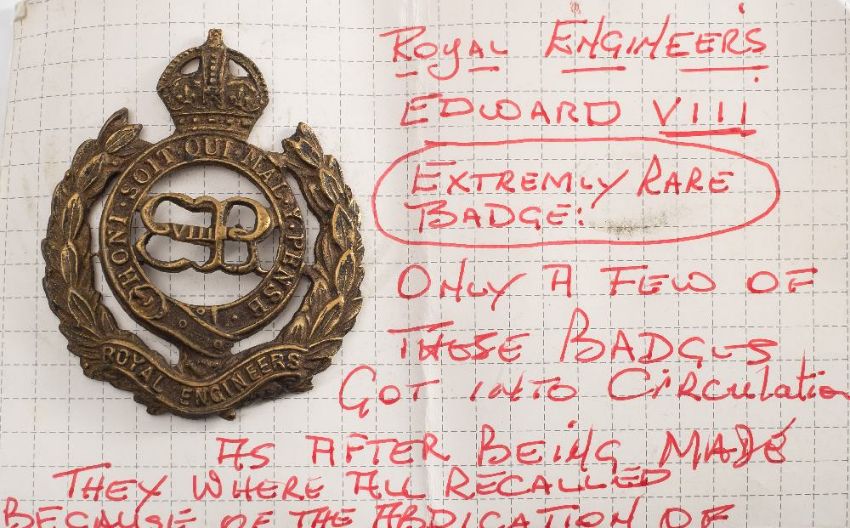 HONI · SOIT · QUI · MAL · Y · PENSE
VIII
ROYAL ENGINEERS
ROYAL ENGINEERS
EDWARD VIII
EXTREMLY RARE
BADGE:
ONLY A FEW OF
THESE BADGES
GOT INTO CIRCULATION
AS AFTER BEING MADE
THEY WHERE ALL RECALLED
BECAUSE OF THE ABDICATION OF